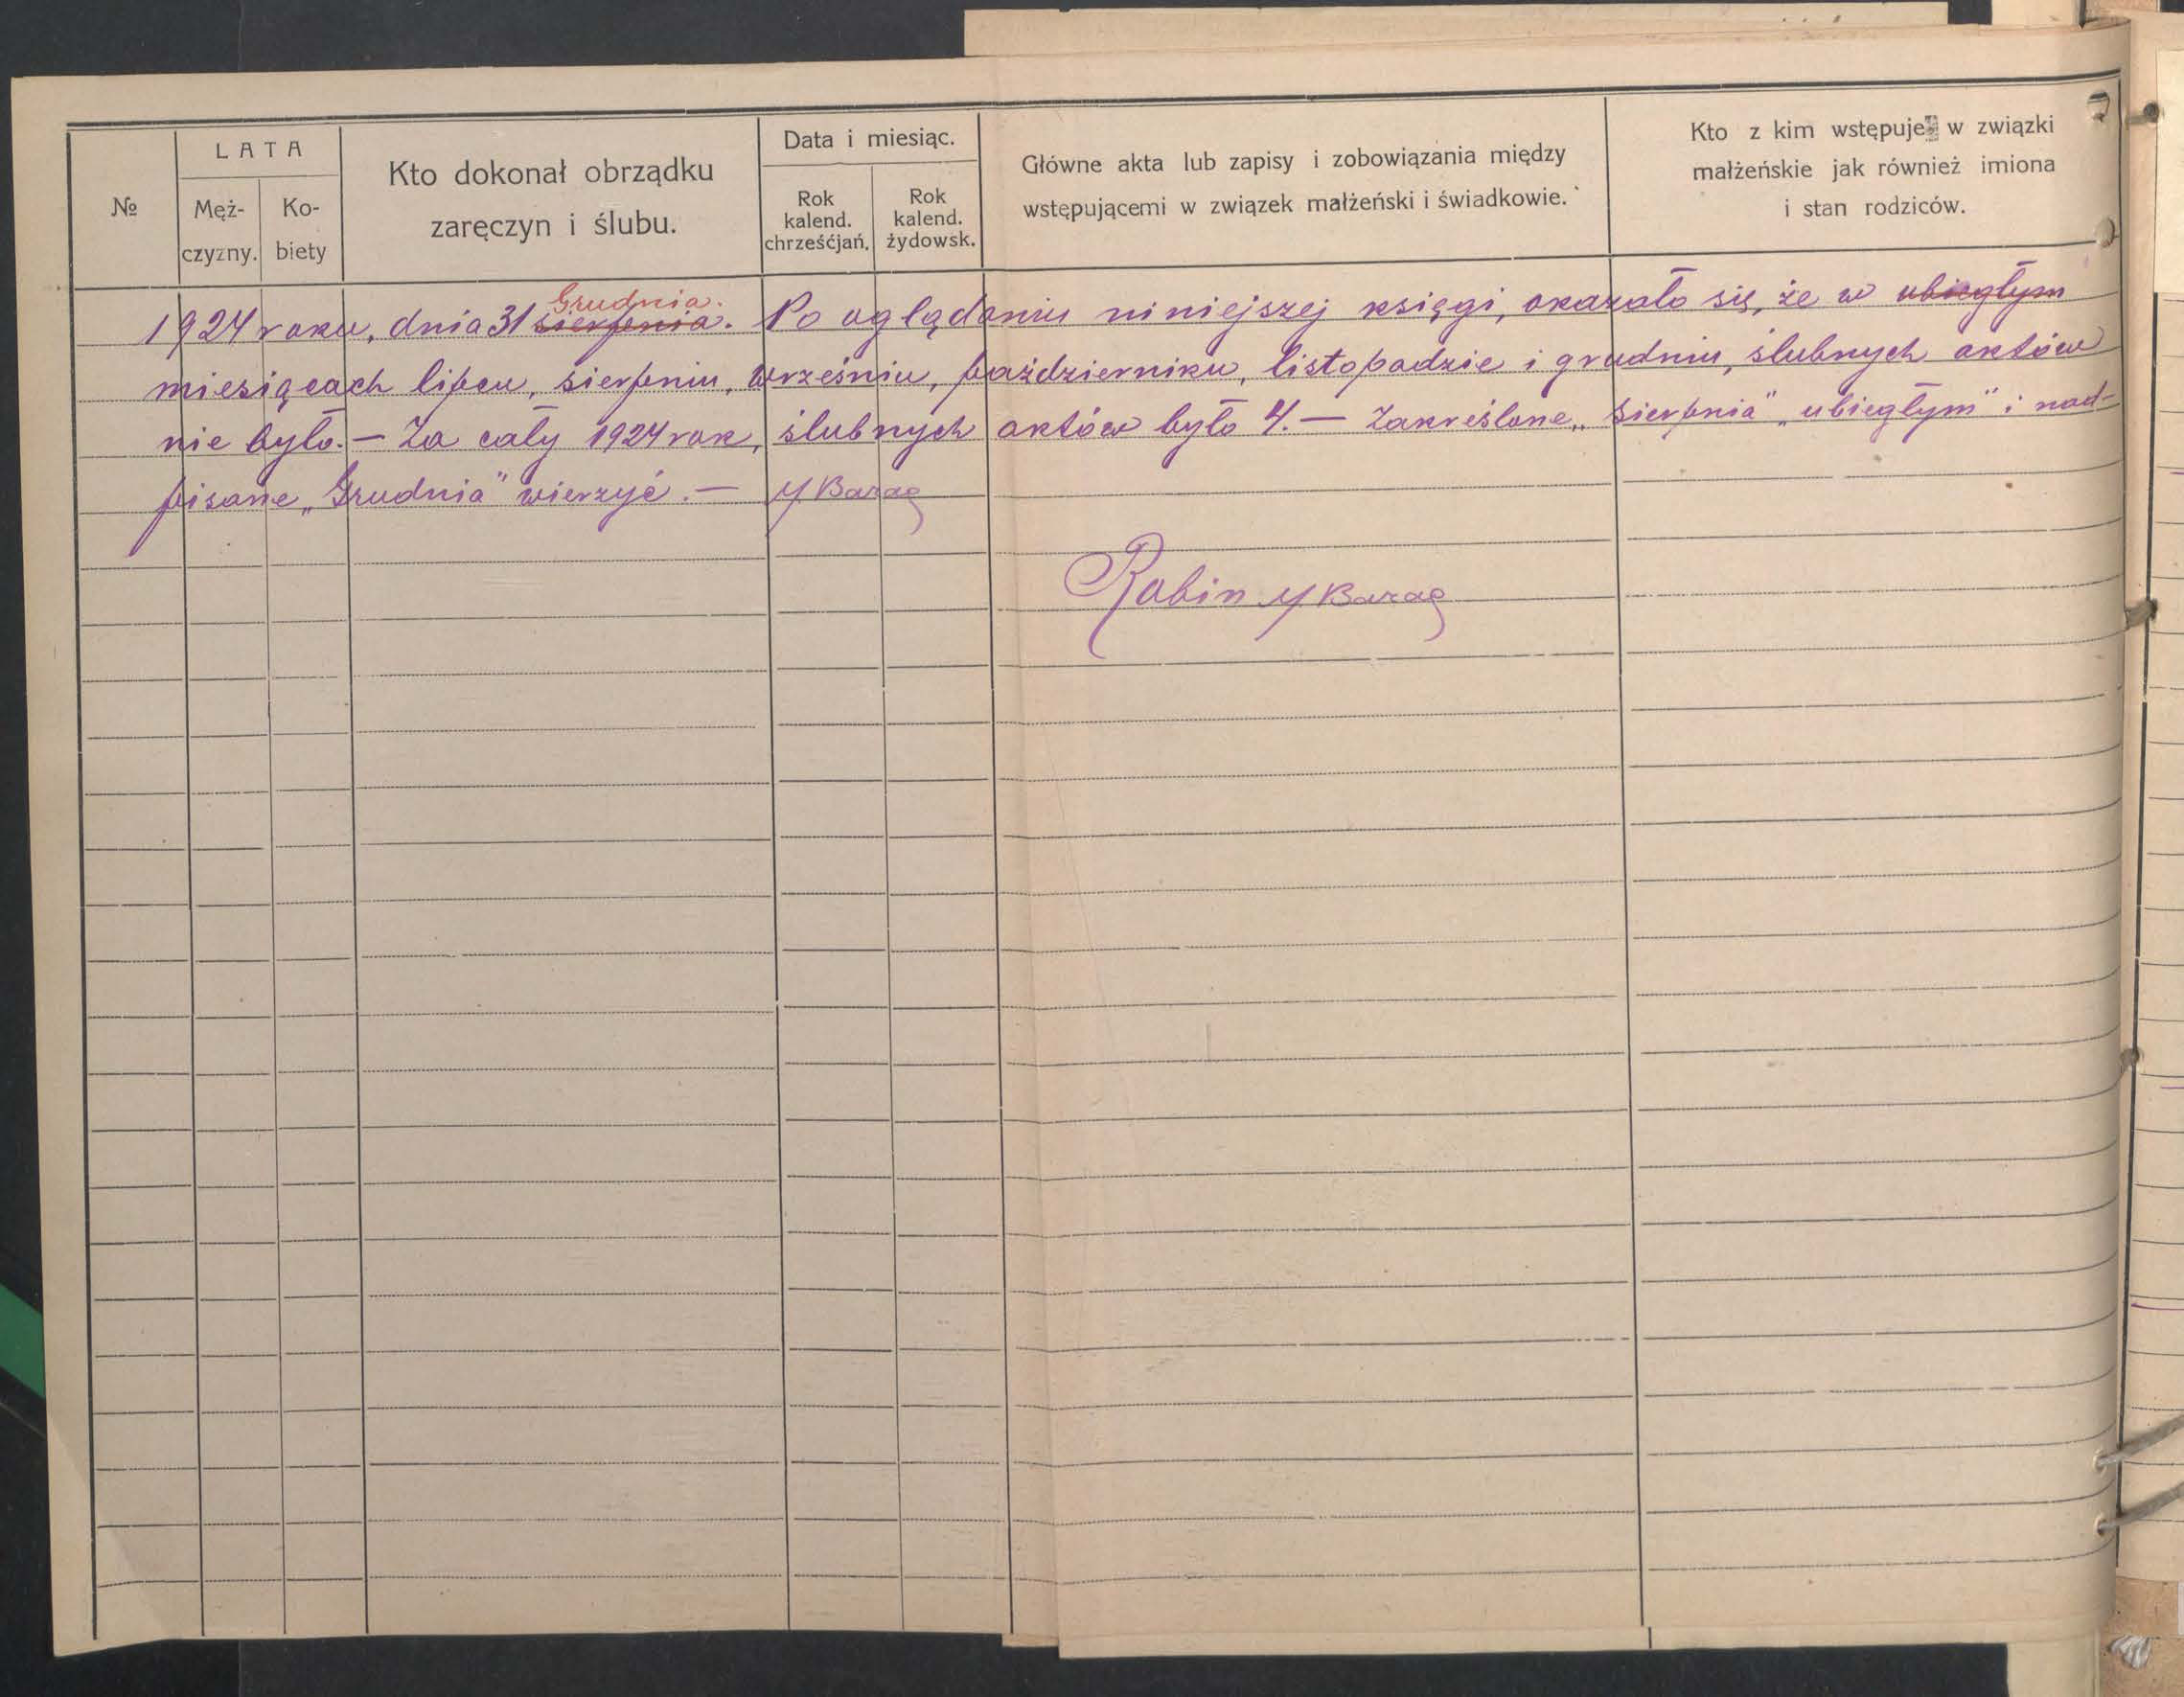 №
LATA
Męż-
czyzny.
Ko-
biety
Kto dokonał obrządku
zaręczyn i ślubu.
Data i miesiąc.
Rok
kalend.
chrześćjań.
Rok
kalend.
żydowsk.
Główne akta lub zapisy i zobowiązania między
wstępującemi w związek małżeński i świadkowie.
Kto z kim wstępuje w związki
małżeńskie jak również imiona
i stan rodziców.
Grudnia.
1924 roku, dnia 31 sierpnia. Po oglądaniu niniejszej księgi, okazało się, że w ubiegłym
miesiącach lipcu, sierpniu, wrześniu, październiku, listopadzie i grudniu, ślubnych aktów
nie było. — Za cały 1924 rok, ślubnych aktów było 4. — Zakreślone „sierpnia" „ubiegłym" i nad-
pisane „Grudnia" wierzyć. — M Barag
Rabin M Barag